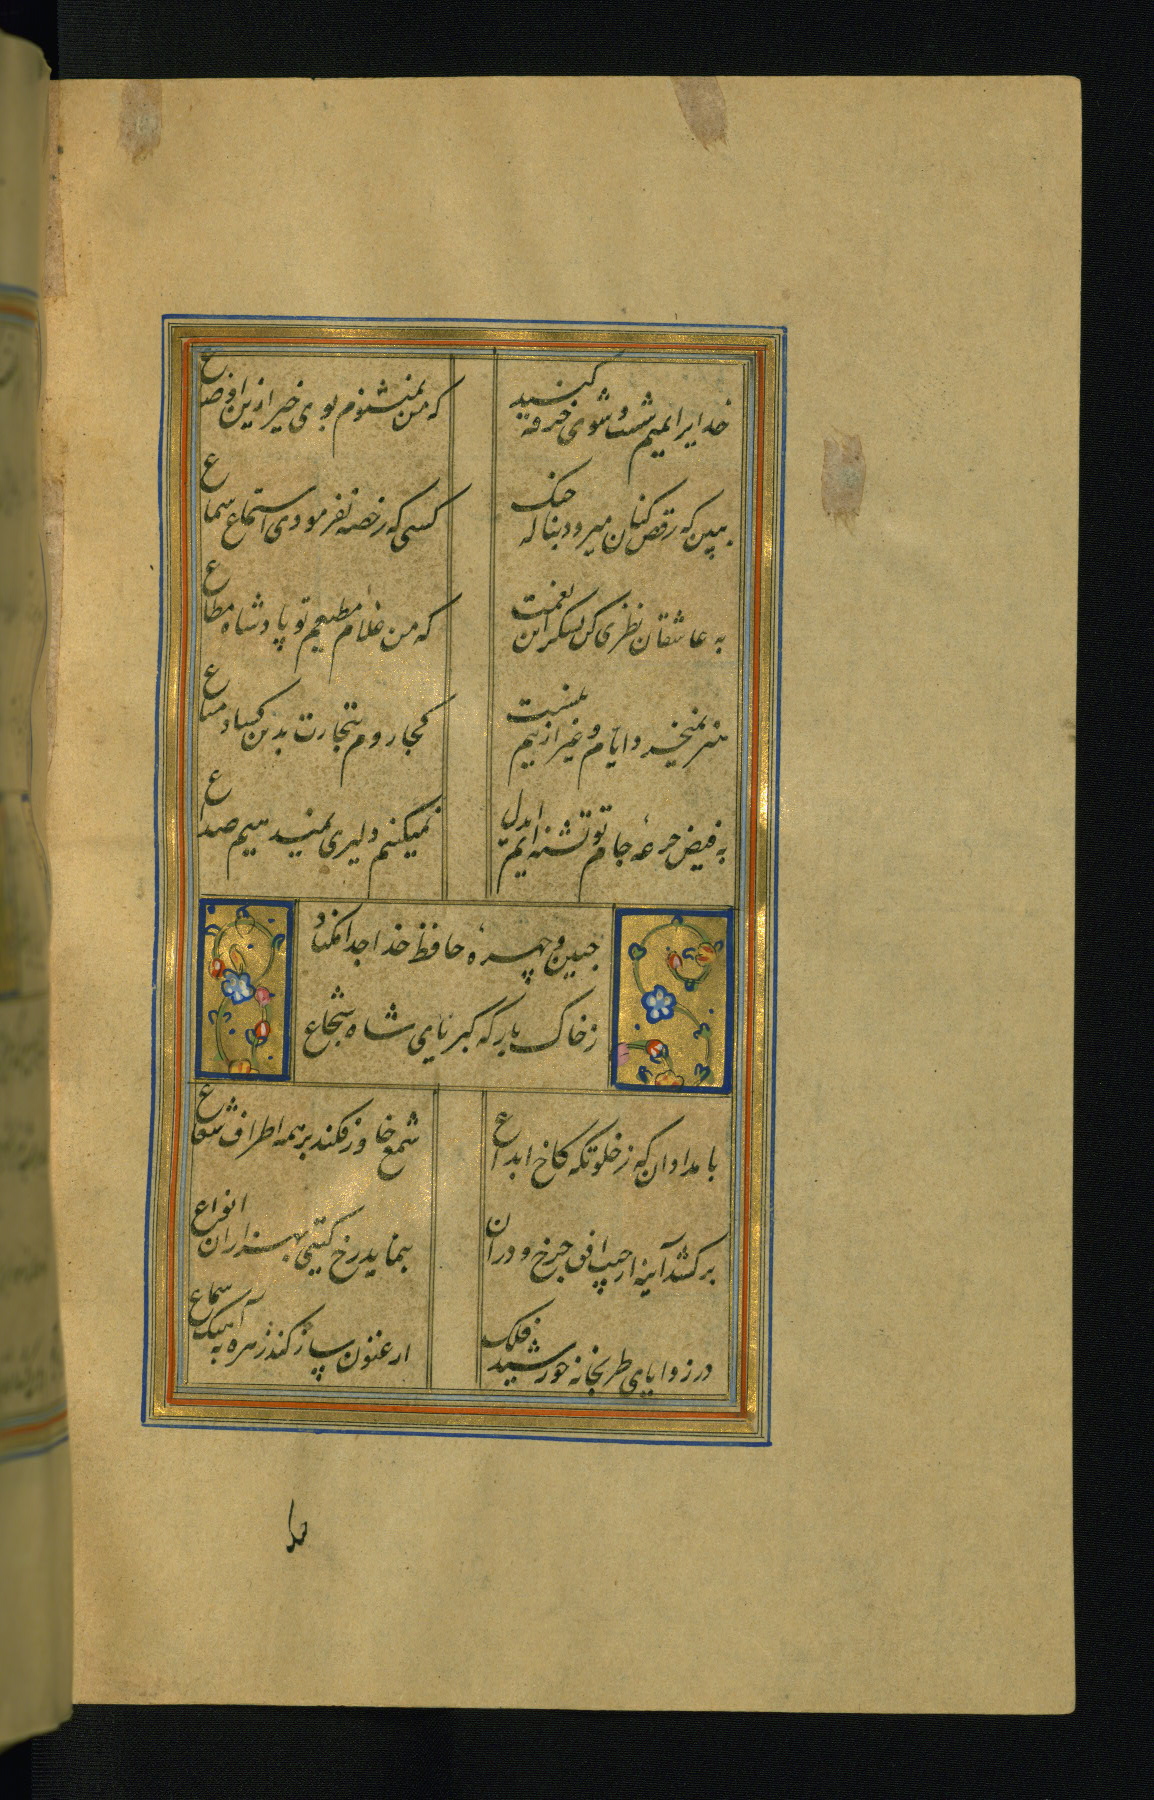 خدایرا بمیم شست و شوی خرقه کنید
که من نمیشنوم بوی خیر ازین اوضاع
ببین که رقص کنان میرود بناله چنک
کسی که رخصه نفرمودی استماع سماع
به عاشقان نظری کن بشکر این نعمت
که من غلام مطیعم تو پادشاه مطاع
هنر نمیخرد ایام و غیر ازینم نیست
کجا روم بتجارت بدین کساد متاع
به فیض جرعه جام تو تشنه ایم ایدل
نمیکنیم دلیری نمیدهیم صداع
جبین و چهرهٔ حافظ خدا جدا مکناد
ز خاک بارکه کبریای شاه شجاع
بامدادان که ز خلوتکه کاخ ابداع
شمع خاور فکند بر همه اطراف شعاع
برکشد آینه از جیب افق چرخ و دران
بنماید رخ کیتی بهزاران انواع
در زوایای طربخانه خورشید فلک
ارغنون ساز کند زهره به آهنک سماع